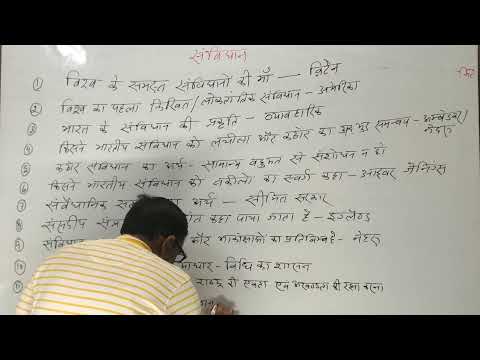 संविधान
① विश्व के समस्त संविधानों की माँ — ब्रिटेन
② विश्व का पहला लिखित/लोकतांत्रिक संविधान - अमेरिका
③ भारत के संविधान की प्रकृति - व्यावहारिक
④ किसने भारतीय संविधान को लचीला और कठोर का समन्वय - अम्बेडकर/नेहरू
⑤ कठोर संविधान का अर्थ - सामान्य बहुमत से संशोधन न हो
⑥ किसने भारतीय संविधान को वकीलों का स्वर्ग कहा - आइवर जेनिंग्स
⑦ संवैधानिक का अर्थ — सीमित सरकार
⑧ संसदीय कहा जाता है - इंग्लैण्ड
⑨ और आकांक्षाओं का प्रतिबिम्ब है - नेहरू
⑩ आधार - विधि का शासन
⑪ राष्ट्र की एकता एवं अखण्डता की रक्षा करना